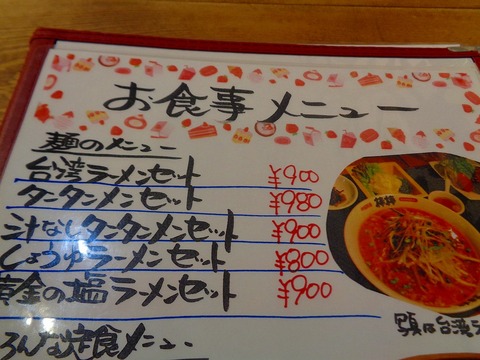 お食事メニュー
麺のメニュー
台湾ラーメンセット ¥900
タータンメンセット ¥980
汁なしタータンメンセット ¥900
しょうゆラーメンセット ¥800
黄金の塩ラーメンセット ¥900
ろんな定食メニュー